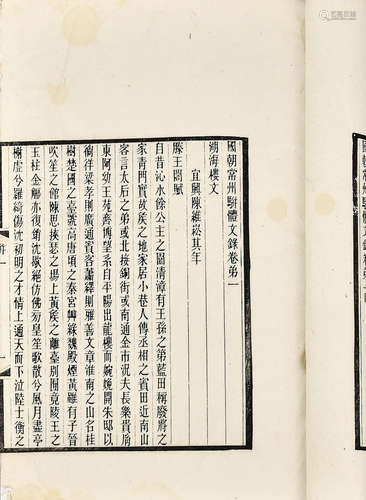 國朝常州駢體文錄卷弟一
湖海樓文
宜興陳維崧其年
滕王閣賦
自昔沁水餘公主之園清漳有王孫之第藍田稱廢將之
家青門實故矦之地家居小巷人傳丞相之賓田近南山
客言太后之弟或北接銅街或南通金市況夫長樂貴
東阿幼王苑齊博望系自平陽出龍樓而婉開朱邸以
徜徉梁孝則廣通賓客蕭繹則雅善文章淮南之山名桂
樹楚國之臺號高唐頃之秦宮綠魏殿煙黃雖有子晉
吹笙之館陳思挾瑟之場上黃矦之離臺別囿竟陵王之
玉柱金觴亦復銷沈歇絕仿佛皇笙歌散兮風月盡亭
榭虛兮羅綺傷沈初明之才情上通天而下泣陸士衡之